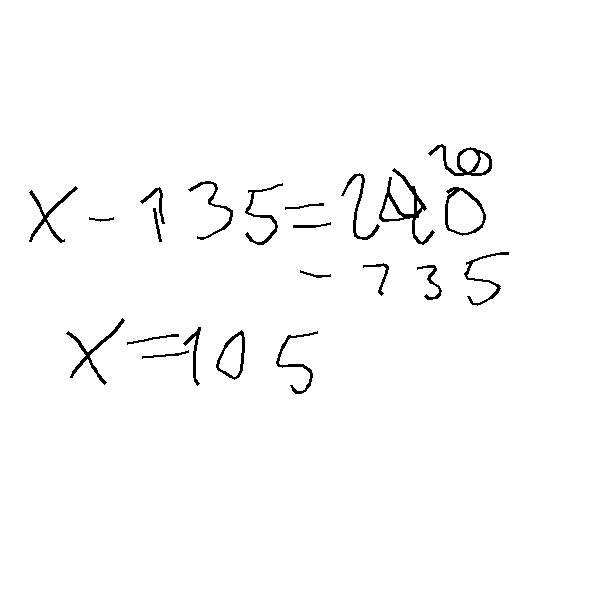 x - 135 = 240
- 135
x = 105